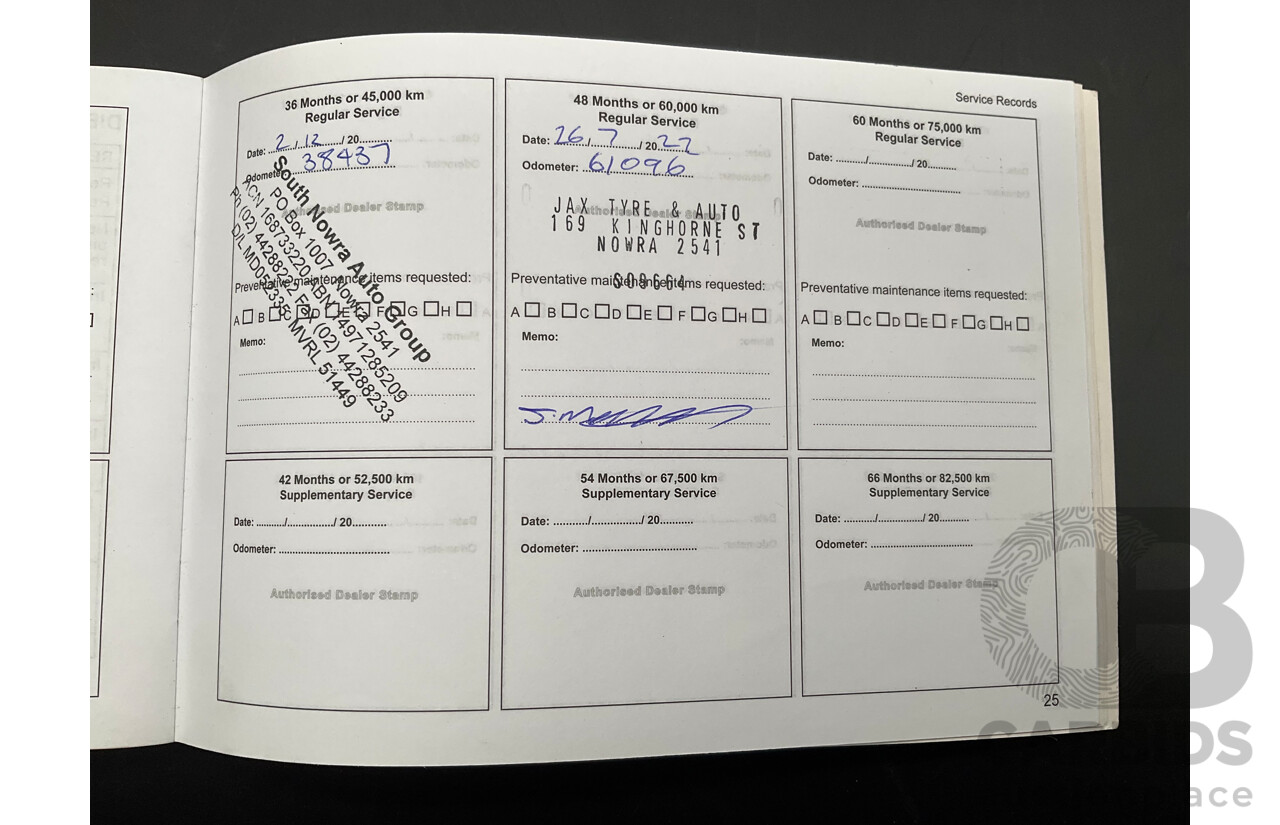 Service Records
36 Months or 45,000 km
Regular Service
Date: 2 / 12 / 20
Odometer: 38437
Authorised Dealer Stamp
South Nowra Auto Group
PO Box 1007 Nowra 2541
ACN 168733220 ABN 74971285209
Ph (02) 44288222 Fax (02) 44288233
D/L MD052335 MVRL 51449
Preventative maintenance items requested:
A B C D E F G H
Memo:
48 Months or 60,000 km
Regular Service
Date: 26 / 7 / 20 22
Odometer: 61096
Authorised Dealer Stamp
JAX TYRE & AUTO
169 KINGHORNE ST
NOWRA 2541
S09664
Preventative maintenance items requested:
A B C D E F G H
Memo:
60 Months or 75,000 km
Regular Service
Date: / / 20
Odometer:
Authorised Dealer Stamp
Preventative maintenance items requested:
A B C D E F G H
Memo:
42 Months or 52,500 km
Supplementary Service
Date: / / 20
Odometer:
Authorised Dealer Stamp
54 Months or 67,500 km
Supplementary Service
Date: / / 20
Odometer:
Authorised Dealer Stamp
66 Months or 82,500 km
Supplementary Service
Date: / / 20
Odometer:
Authorised Dealer Stamp
25
CARBIDS